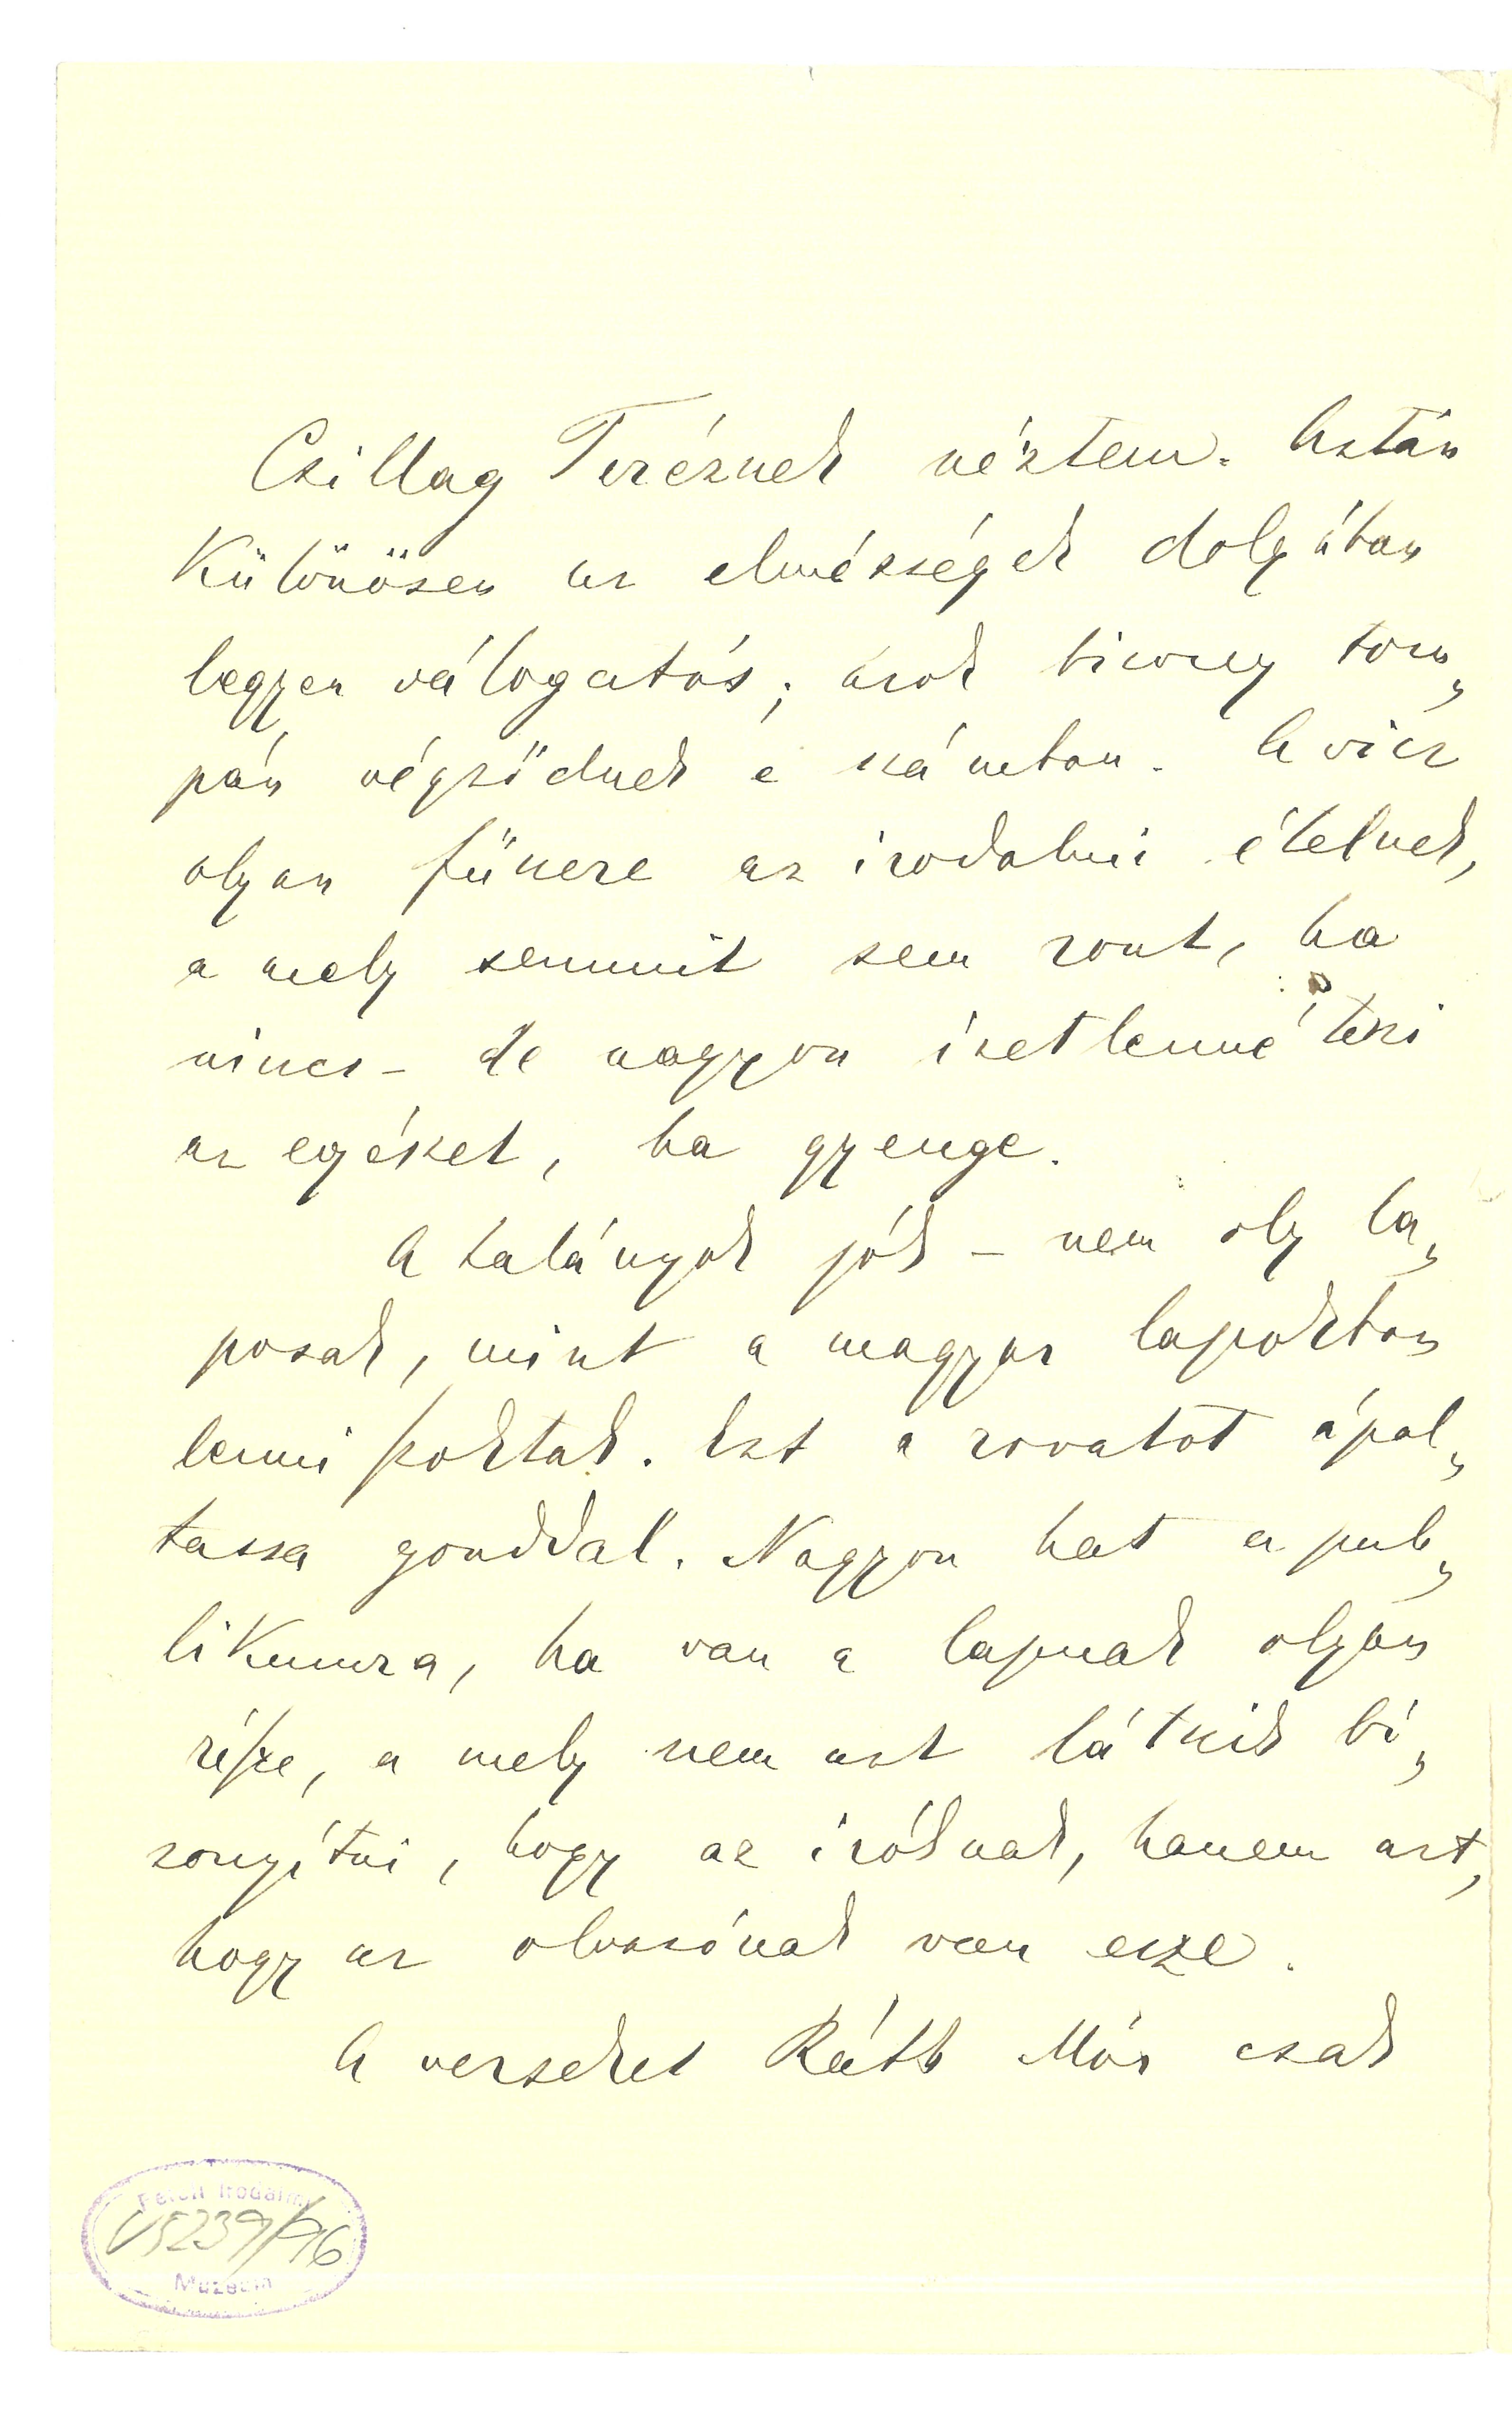 Csillag Teréznek néztem. Aztán
különösen az elmésségek dolgában
legyen válogatós; azok bizony tom„
pán végződnek e számban. A vicz
olyan füszere az irodalmi ételnek,
a mely semmit sem ront, ha
nincs – de nagyon izetlenné teszi
az egészet, ha gyenge.
A talányok jók – nem oly la„
posak, mint a magyar lapokban
lenni szoktak. Ezt a rovatot ápol„
tassa gonddal. Nagyon hat a pub„
likumra, ha van a lapnak olyan
része, a mely nem azt látszik bi„
zonyítni, hogy az iróknak, hanem azt,
hogy az olvasónak van esze.
A verseket Ráth Mór csak
Petőfi Irodalmi
V5239/76
Múzeum